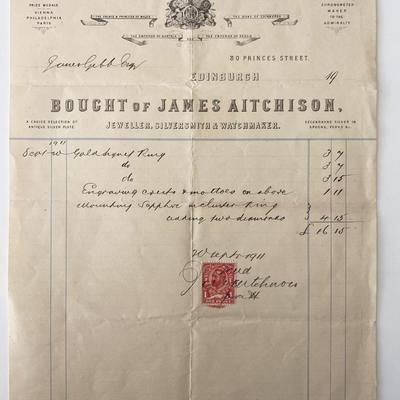 PRIZE MEDALS
VIENNA
PHILADELPHIA
PARIS
THE PRINCE & PRINCESS OF WALES
THE DUKE OF EDINBURGH
CHRONOMETER
MAKER
TO THE
ADMIRALTY
THE EMPEROR OF AUSTRIA
AND
THE EMPEROR OF RUSSIA
James Gibb Esq
80 PRINCES STREET.
EDINBURGH 19
BOUGHT OF JAMES AITCHISON,
JEWELLER, SILVERSMITH & WATCHMAKER.
A CHOICE SELECTION OF
ANTIQUE SILVER PLATE
SECONDHAND SILVER IN
SPOONS, FORKS &c.
1911
Gold Signet Ring 3 7
do 3 7
do 3 15
Engraving crests & mottoes on above 1 11
Mounting Sapphire in cluster Ring
adding two diamonds 4 15
£ 16 15
1911